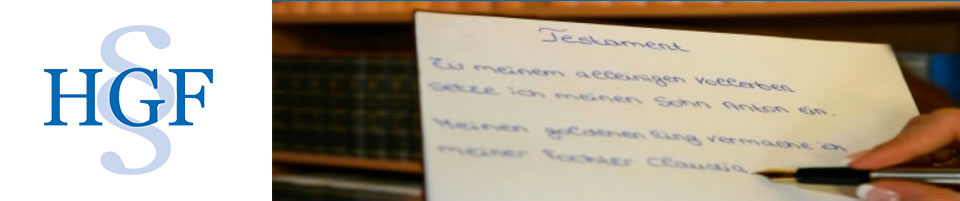 §
HGF
Testament
Zu meinem alleinigen Vollerben
setze ich meinen Sohn Anton ein.
Meinen goldenen Ring vermache ich
meiner Tochter Claudia